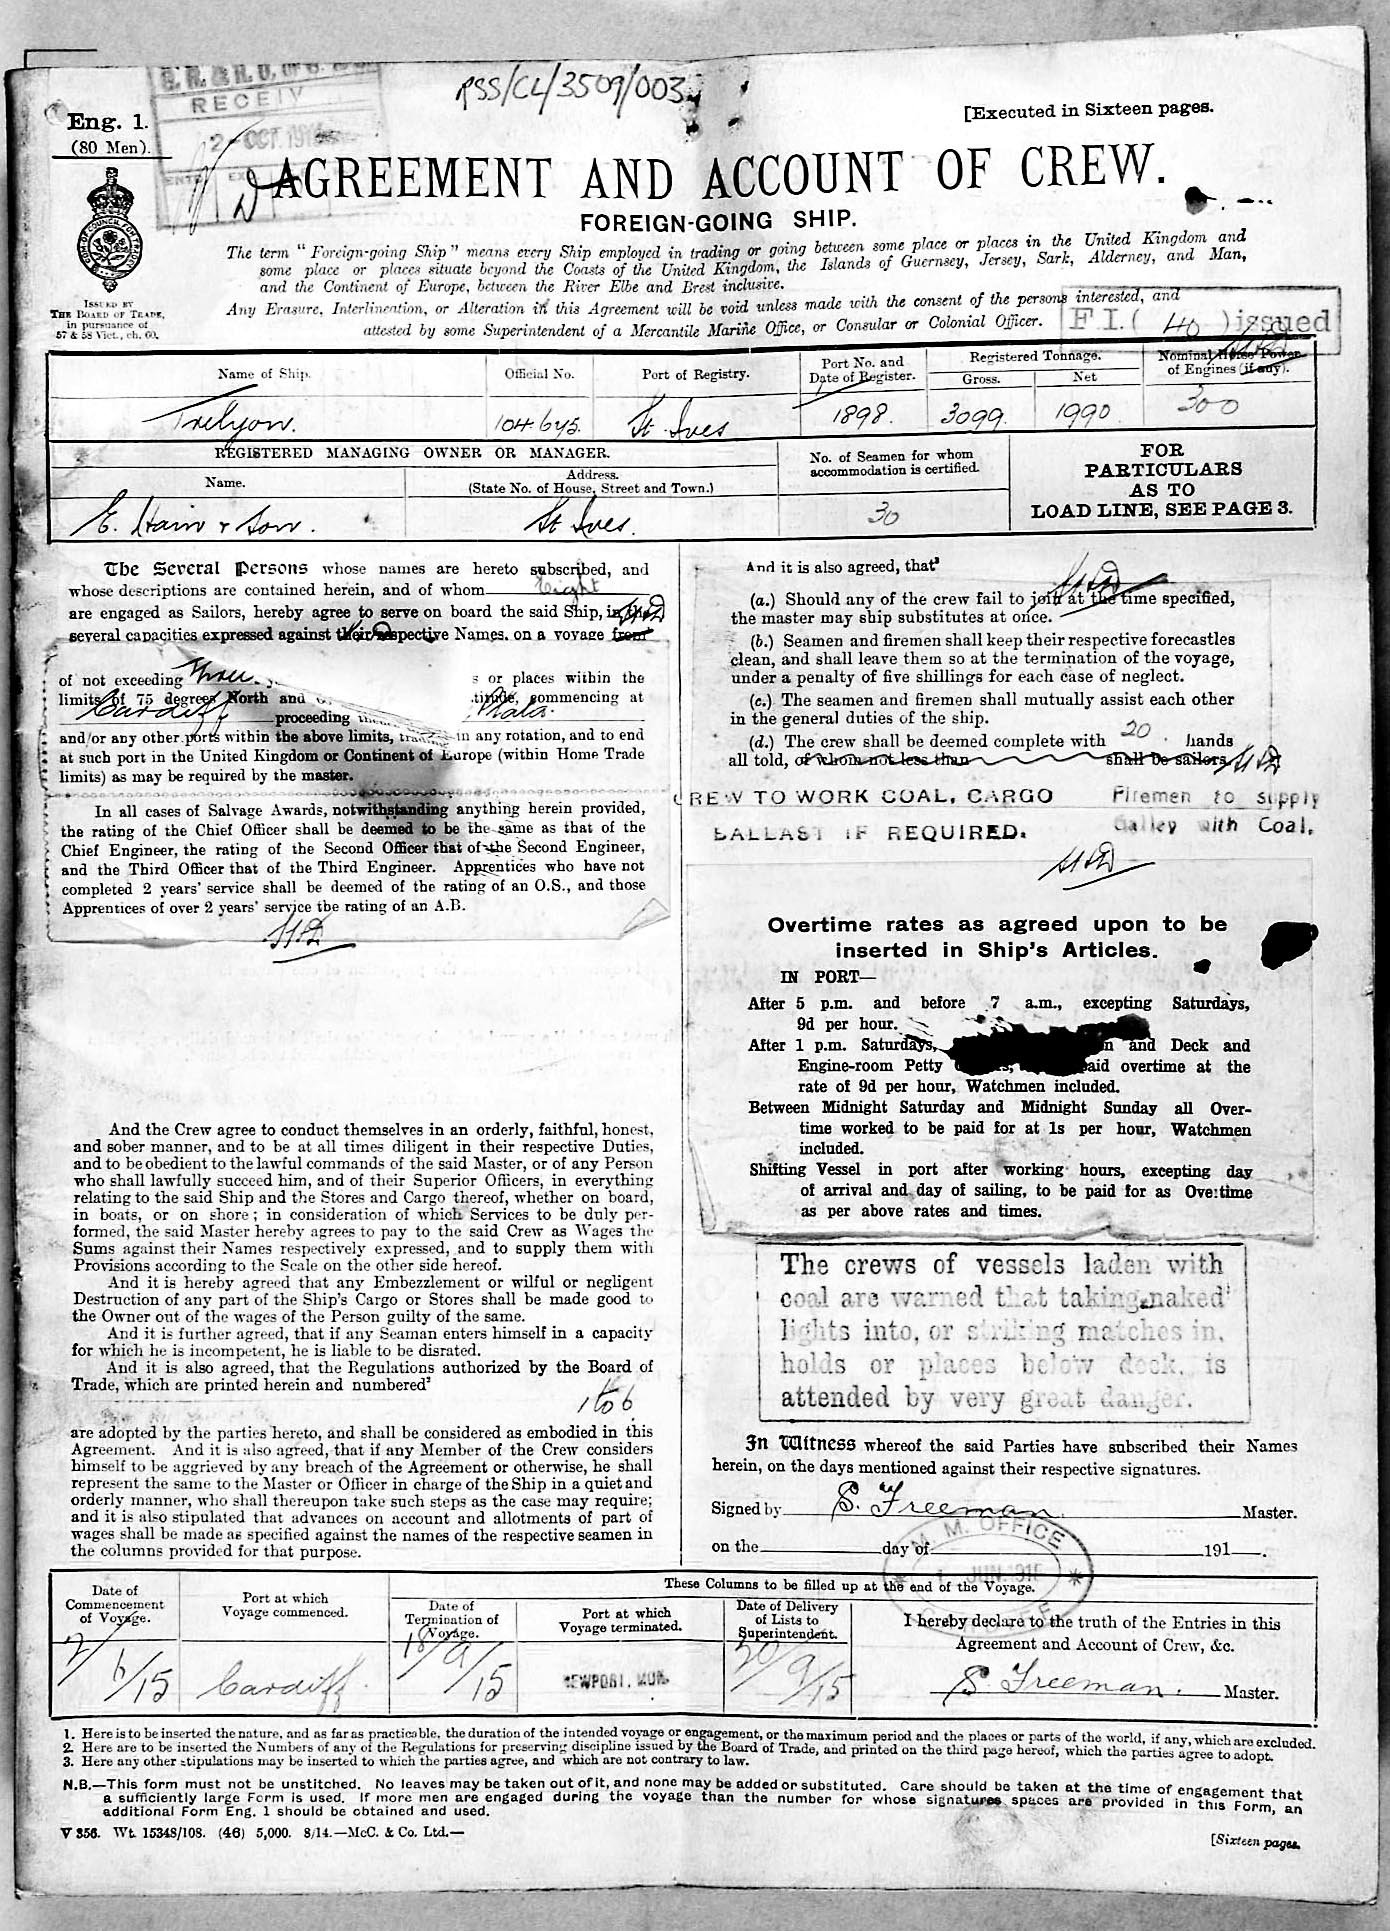 RSS/CL/3509/003
RECEIV
2 - OCT. 191
Eng. 1.
(80 Men).
[Executed in Sixteen pages.
AGREEMENT AND ACCOUNT OF CREW.
FOREIGN-GOING SHIP.
ISSUED BY
THE BOARD OF TRADE,
in pursuance of
57 & 58 Vict., ch. 60.
The term "Foreign-going Ship" means every Ship employed in trading or going between some place or places in the United Kingdom and
some place or places situate beyond the Coasts of the United Kingdom, the Islands of Guernsey, Jersey, Sark, Alderney, and Man,
and the Continent of Europe, between the River Elbe and Brest inclusive.
Any Erasure, Interlineation, or Alteration in this Agreement will be void unless made with the consent of the persons interested, and
attested by some Superintendent of a Mercantile Marine Office, or Consular or Colonial Officer.
F I. ( 40 ) issued
Name of Ship. Official No. Port of Registry. Port No. and Date of Register. Registered Tonnage. Gross. Net Nominal Horse Power of Engines (if any).
Trelyon. 104645. St. Ives 1898. 3099. 1990 300
REGISTERED MANAGING OWNER OR MANAGER.
Name. Address. (State No. of House, Street and Town.)
No. of Seamen for whom accommodation is certified.
FOR PARTICULARS AS TO LOAD LINE, SEE PAGE 3.
E. Hain & Son. St Ives. 30
The Several Persons whose names are hereto subscribed, and
whose descriptions are contained herein, and of whom Eight
are engaged as Sailors, hereby agree to serve on board the said Ship, in the
several capacities expressed against their respective Names, on a voyage from
of not exceeding Three s or places within the
limits of 75 degrees North and commencing at
Cardiff proceeding
and/or any other ports within the above limits, in any rotation, and to end
at such port in the United Kingdom or Continent of Europe (within Home Trade
limits) as may be required by the master.
In all cases of Salvage Awards, notwithstanding anything herein provided,
the rating of the Chief Officer shall be deemed to be the same as that of the
Chief Engineer, the rating of the Second Officer that of the Second Engineer,
and the Third Officer that of the Third Engineer. Apprentices who have not
completed 2 years' service shall be deemed of the rating of an O.S., and those
Apprentices of over 2 years' service the rating of an A.B.
And the Crew agree to conduct themselves in an orderly, faithful, honest,
and sober manner, and to be at all times diligent in their respective Duties,
and to be obedient to the lawful commands of the said Master, or of any Person
who shall lawfully succeed him, and of their Superior Officers, in everything
relating to the said Ship and the Stores and Cargo thereof, whether on board,
in boats, or on shore; in consideration of which Services to be duly per-
formed, the said Master hereby agrees to pay to the said Crew as Wages the
Sums against their Names respectively expressed, and to supply them with
Provisions according to the Scale on the other side hereof.
And it is hereby agreed that any Embezzlement or wilful or negligent
Destruction of any part of the Ship's Cargo or Stores shall be made good to
the Owner out of the wages of the Person guilty of the same.
And it is further agreed, that if any Seaman enters himself in a capacity
for which he is incompetent, he is liable to be disrated.
And it is also agreed, that the Regulations authorized by the Board of
Trade, which are printed herein and numbered²
1 to 6
are adopted by the parties hereto, and shall be considered as embodied in this
Agreement. And it is also agreed, that if any Member of the Crew considers
himself to be aggrieved by any breach of the Agreement or otherwise, he shall
represent the same to the Master or Officer in charge of the Ship in a quiet and
orderly manner, who shall thereupon take such steps as the case may require;
and it is also stipulated that advances on account and allotments of part of
wages shall be made as specified against the names of the respective seamen in
the columns provided for that purpose.
And it is also agreed, that³
(a.) Should any of the crew fail to join at the time specified,
the master may ship substitutes at once.
(b.) Seamen and firemen shall keep their respective forecastles
clean, and shall leave them so at the termination of the voyage,
under a penalty of five shillings for each case of neglect.
(c.) The seamen and firemen shall mutually assist each other
in the general duties of the ship.
(d.) The crew shall be deemed complete with 20 hands
all told, of whom not less than shall be sailors.
CREW TO WORK COAL, CARGO
BALLAST IF REQUIRED.
Firemen to supply
Galley with Coal.
Overtime rates as agreed upon to be
inserted in Ship's Articles.
IN PORT—
After 5 p.m. and before 7 a.m., excepting Saturdays,
9d per hour.
After 1 p.m. Saturdays, and Deck and
Engine-room Petty paid overtime at the
rate of 9d per hour, Watchmen included.
Between Midnight Saturday and Midnight Sunday all Over-
time worked to be paid for at 1s per hour, Watchmen
included.
Shifting Vessel in port after working hours, excepting day
of arrival and day of sailing, to be paid for as Overtime
as per above rates and times.
The crews of vessels laden with
coal are warned that taking naked
lights into, or striking matches in,
holds or places below deck, is
attended by very great danger.
In Witness whereof the said Parties have subscribed their Names
herein, on the days mentioned against their respective signatures.
Signed by S. Freeman Master.
on the day of 191 .
M. M. OFFICE
These Columns to be filled up at the end of the Voyage.
Date of Commencement of Voyage. Port at which Voyage commenced. Date of Termination of Voyage. Port at which Voyage terminated. Date of Delivery of Lists to Superintendent.
I hereby declare to the truth of the Entries in this
Agreement and Account of Crew, &c.
2/6/15 Cardiff 18/9/15 NEWPORT, MON. 20/9/15 S. Freeman. Master.
1. Here is to be inserted the nature, and as far as practicable, the duration of the intended voyage or engagement, or the maximum period and the places or parts of the world, if any, which are excluded.
2. Here are to be inserted the Numbers of any of the Regulations for preserving discipline issued by the Board of Trade, and printed on the third page hereof, which the parties agree to adopt.
3. Here any other stipulations may be inserted to which the parties agree, and which are not contrary to law.
N.B.—This form must not be unstitched. No leaves may be taken out of it, and none may be added or substituted. Care should be taken at the time of engagement that
a sufficiently large Form is used. If more men are engaged during the voyage than the number for whose signatures spaces are provided in this Form, an
additional Form Eng. 1 should be obtained and used.
V 356. Wt. 15348/108. (46) 5,000. 8/14.—McC. & Co. Ltd.—
[Sixteen pages.